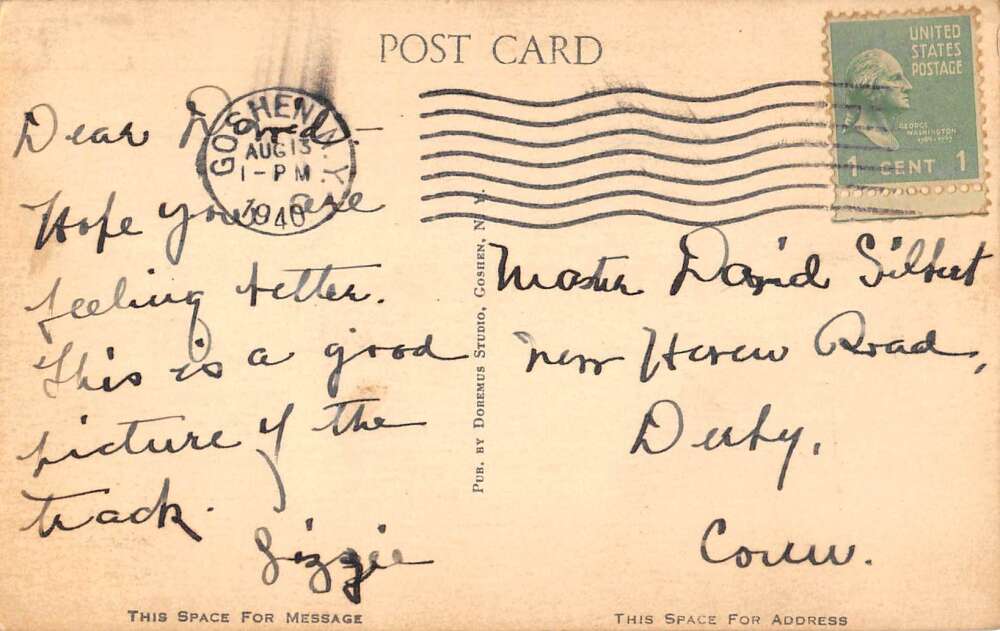 POST CARD
UNITED
STATES
POSTAGE
GEORGE
WASHINGTON
1 CENT 1
GOSHEN N.Y.
AUG 13
1-PM
1940
Dear
Hope you are
feeling better.
This is a good
picture of the
track.
Lizzie
Master David Gilbert
New Haven Road,
Derby,
Conn.
PUB. BY DOREMUS STUDIO, GOSHEN, N. Y.
THIS SPACE FOR MESSAGE
THIS SPACE FOR ADDRESS